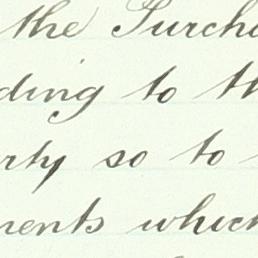 the Purcha
ding to th
rty so to
ments which